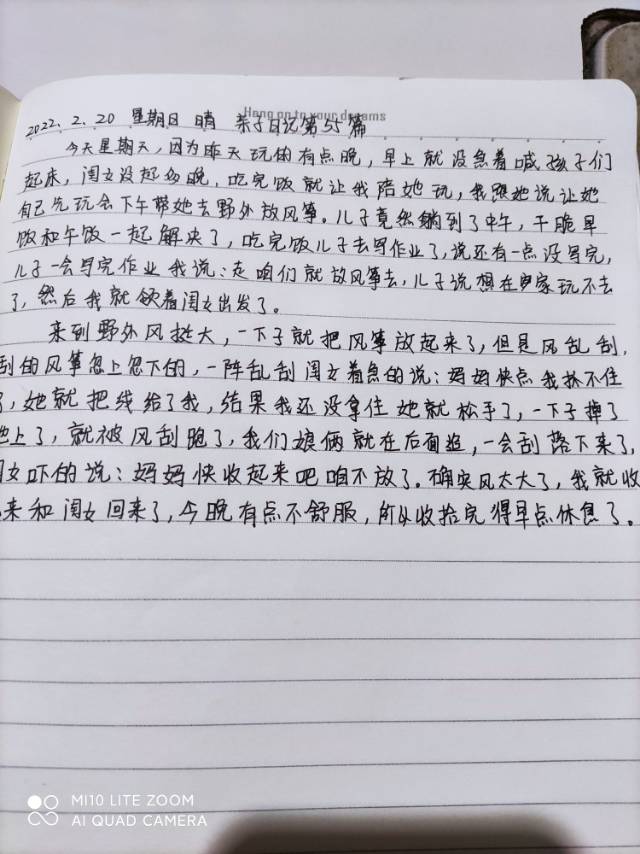 Hang on to your dreams
2022.2.20 星期日 晴 亲子日记第55篇
今天星期天，因为昨天玩的有点晚，早上就没急着喊孩子们
起床，闺女没起多晚，吃完饭就让我陪她玩，我跟她说让她
自己先玩会下午带她去野外放风筝。儿子竟然躺到了中午，干脆早
饭和午饭一起解决了，吃完饭儿子去写作业了，说还有一点没写完，
儿子一会写完作业我说：走咱们就放风筝去，儿子说想在家玩不去
了，然后我就领着闺女出发了。
来到野外风挺大，一下子就把风筝放起来了，但是风乱刮，
刮的风筝忽上忽下的，一阵乱刮闺女着急的说：妈妈快点我拽不住
了，她就把线给了我，结果我还没拿住她就松手了，一下子掉了
地上了，就被风刮跑了，我们娘俩就在后面追，一会刮落下来了，
闺女吓的说：妈妈快收起来吧咱不放了。确实风太大了，我就收
来和闺女回来了，今晚有点不舒服，所以收拾完得早点休息了。
MI10 LITE ZOOM
AI QUAD CAMERA